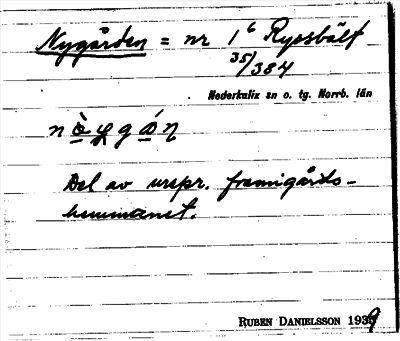 Nygården = nr 1⁶ Ryssbält
35/384
Nederkalix sn o. tg. Norrb. län
Del av urspr. framigårds-
hemmanet.
RUBEN DANIELSSON 1939